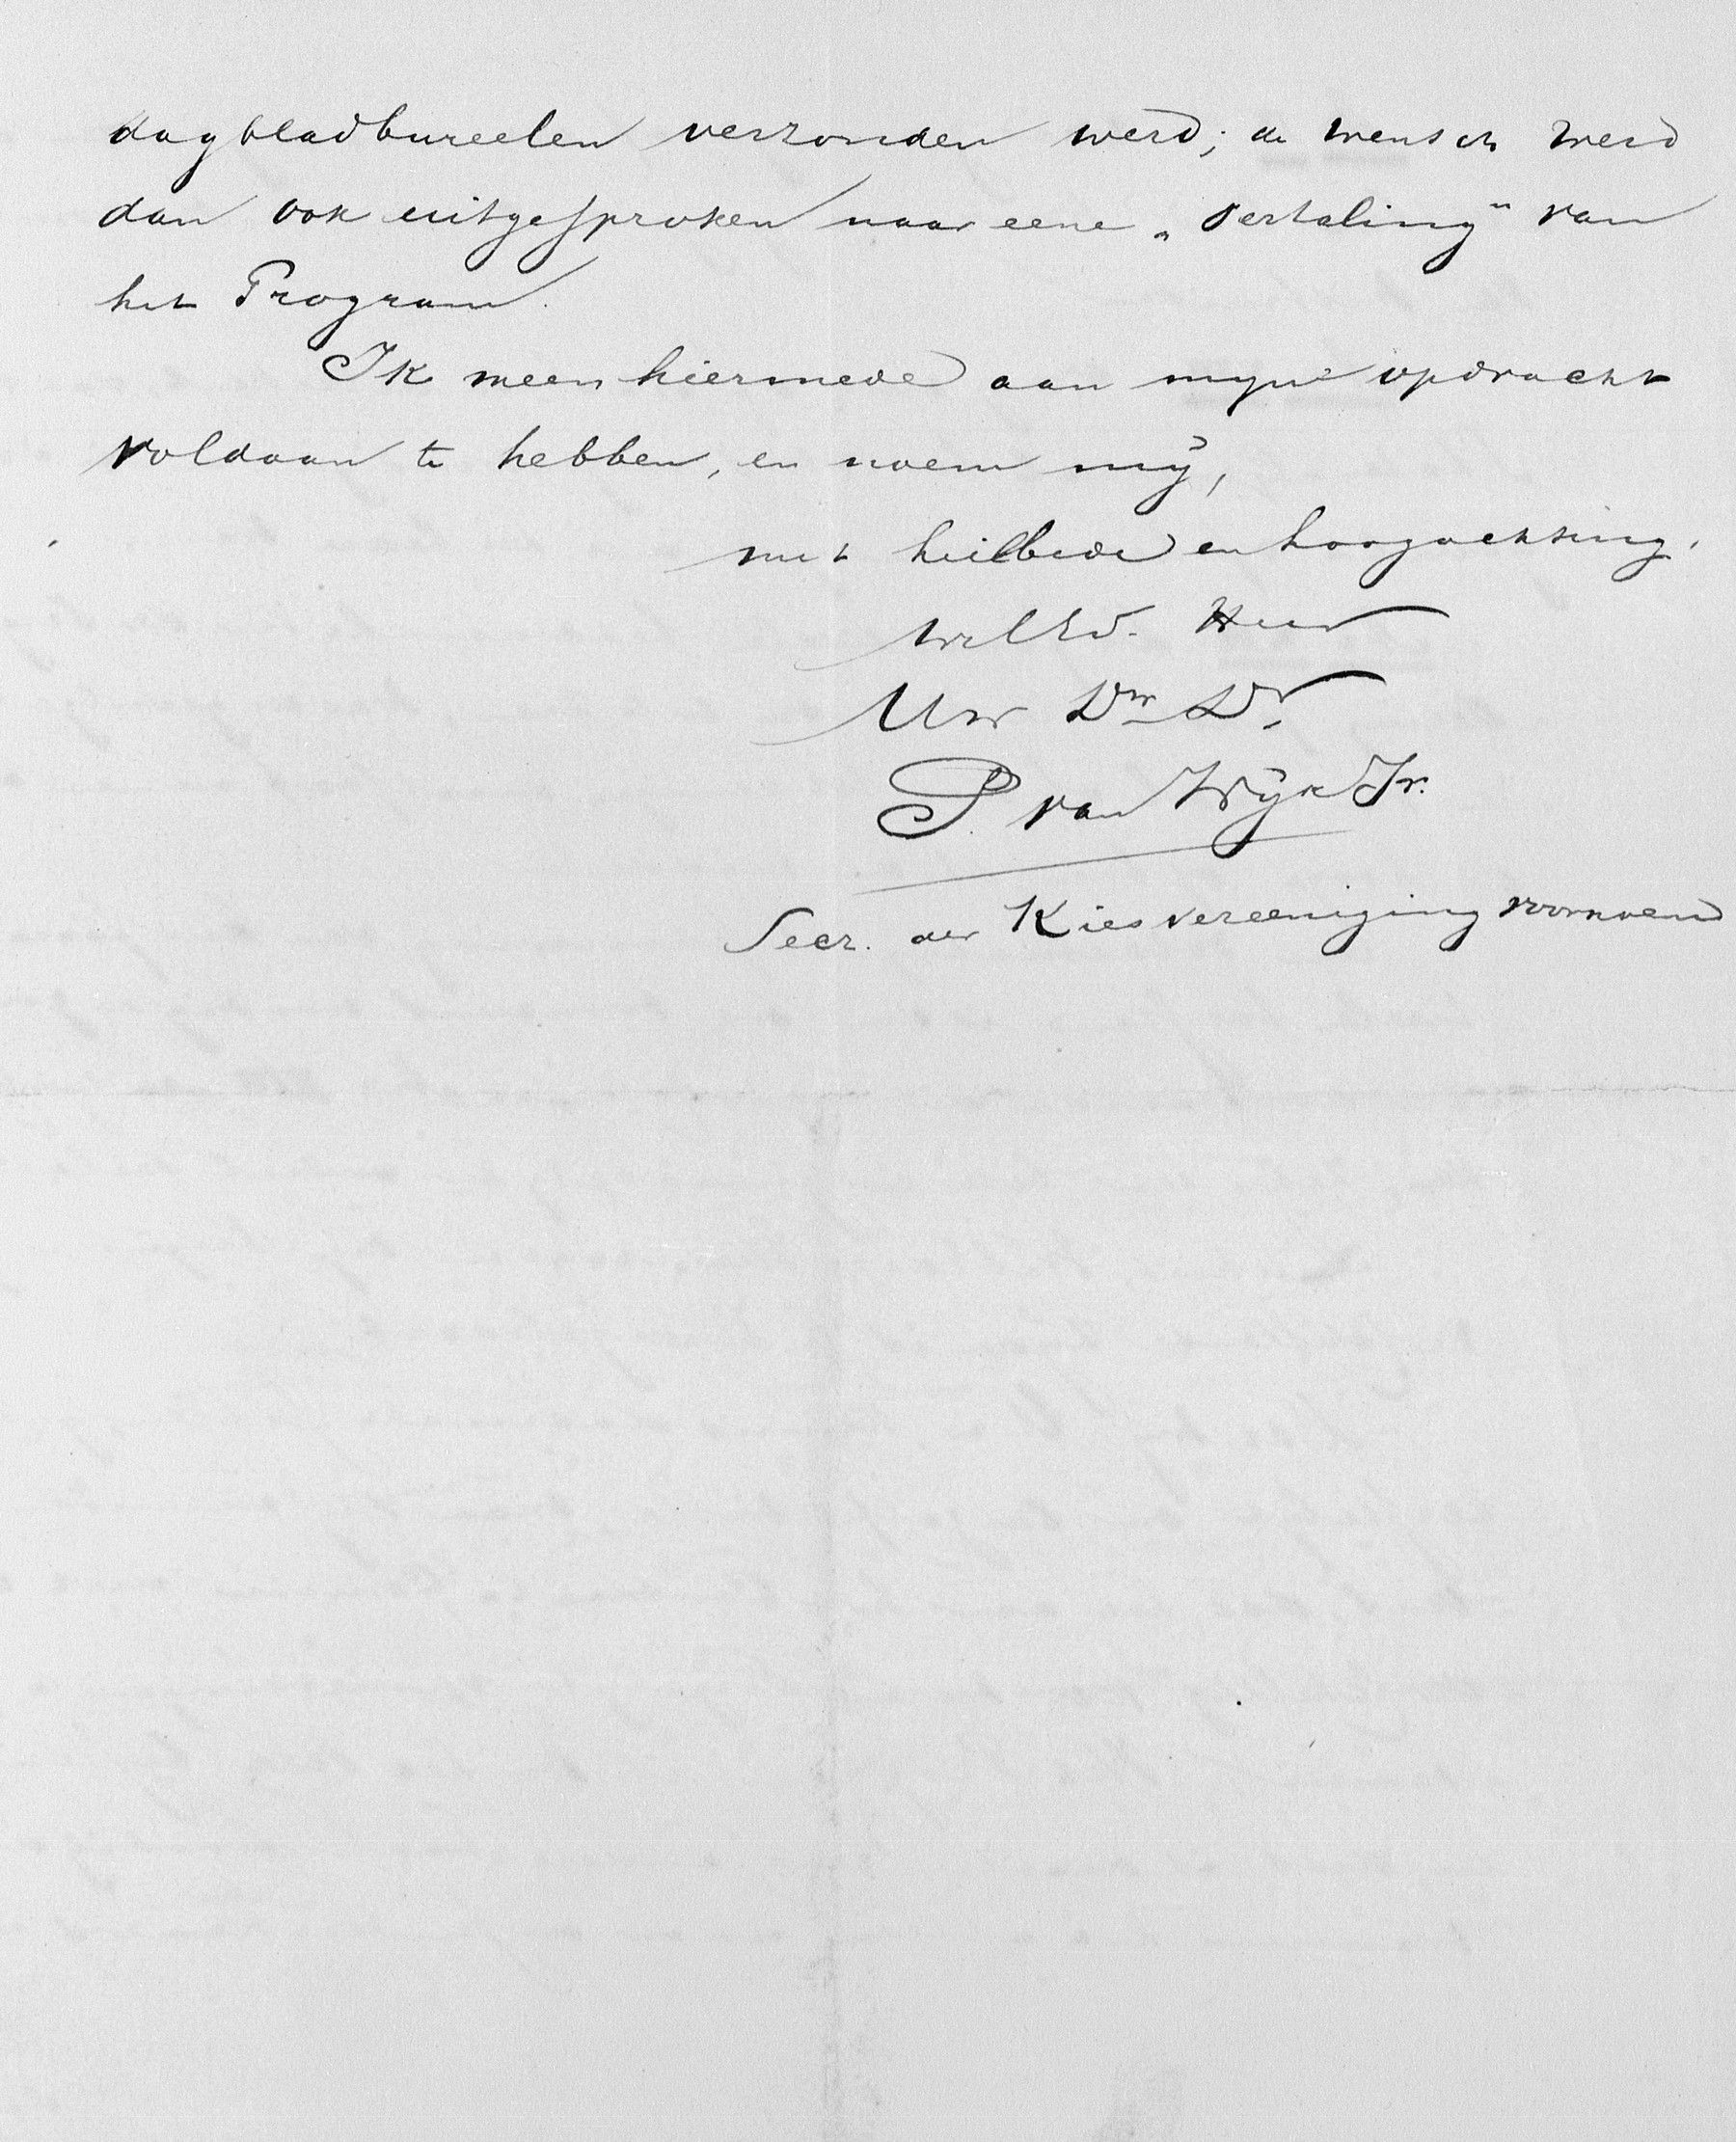 dagbladbureelen verzonden werd; de wensch werd
dan ook uitgesproken naar eene „vertaling" van
het Program.
Ik meen hiermede aan myne opdracht
voldaan te hebben, en noem mij,
met heilbede en hoogachting,
WelEd. Heer
Uw Dw Dr
P. van Wijk Jr.
Secr. der Kiesvereeniging voornoemd